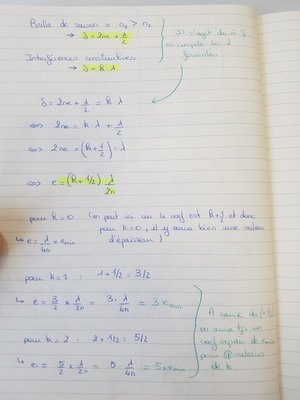 Bulle de savon = n2 > n1
→ δ = 2ne + λ/2
Interférences constructives
→ δ = k · λ
Il s'agit du δ
en compte les 2
formules
δ = 2ne + λ/2 = k · λ
⇔ 2ne = k · λ + λ/2
⇔ 2ne = (k + 1/2) · λ
⇔ e = (k + 1/2) λ/2n
pour k = 0 (on peut ici car le coef est k + 1/2 et donc
pour k = 0, il y aura bien une valeur
d'épaisseur)
↳ e = λ/4n = emin
pour k = 1 : 1 + 1/2 = 3/2
↳ e = 3/2 × λ/2n = 3 · λ/4n = 3 emin
pour k = 2 : 2 + 1/2 = 5/2
↳ e = 5/2 × λ/2n = 5 · λ/4n = 5 × emin
À cause du (+1/2)
on aura tjs un
coef impair de emin
pour valeurs
de k